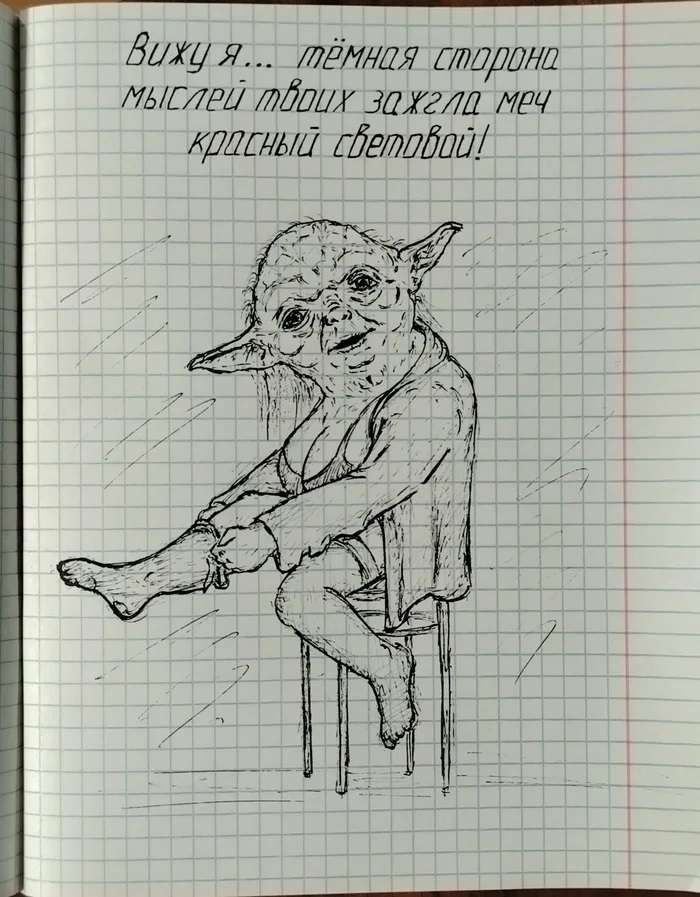 Вижу я... тёмная сторона
мыслей твоих зажгла меч
красный световой!